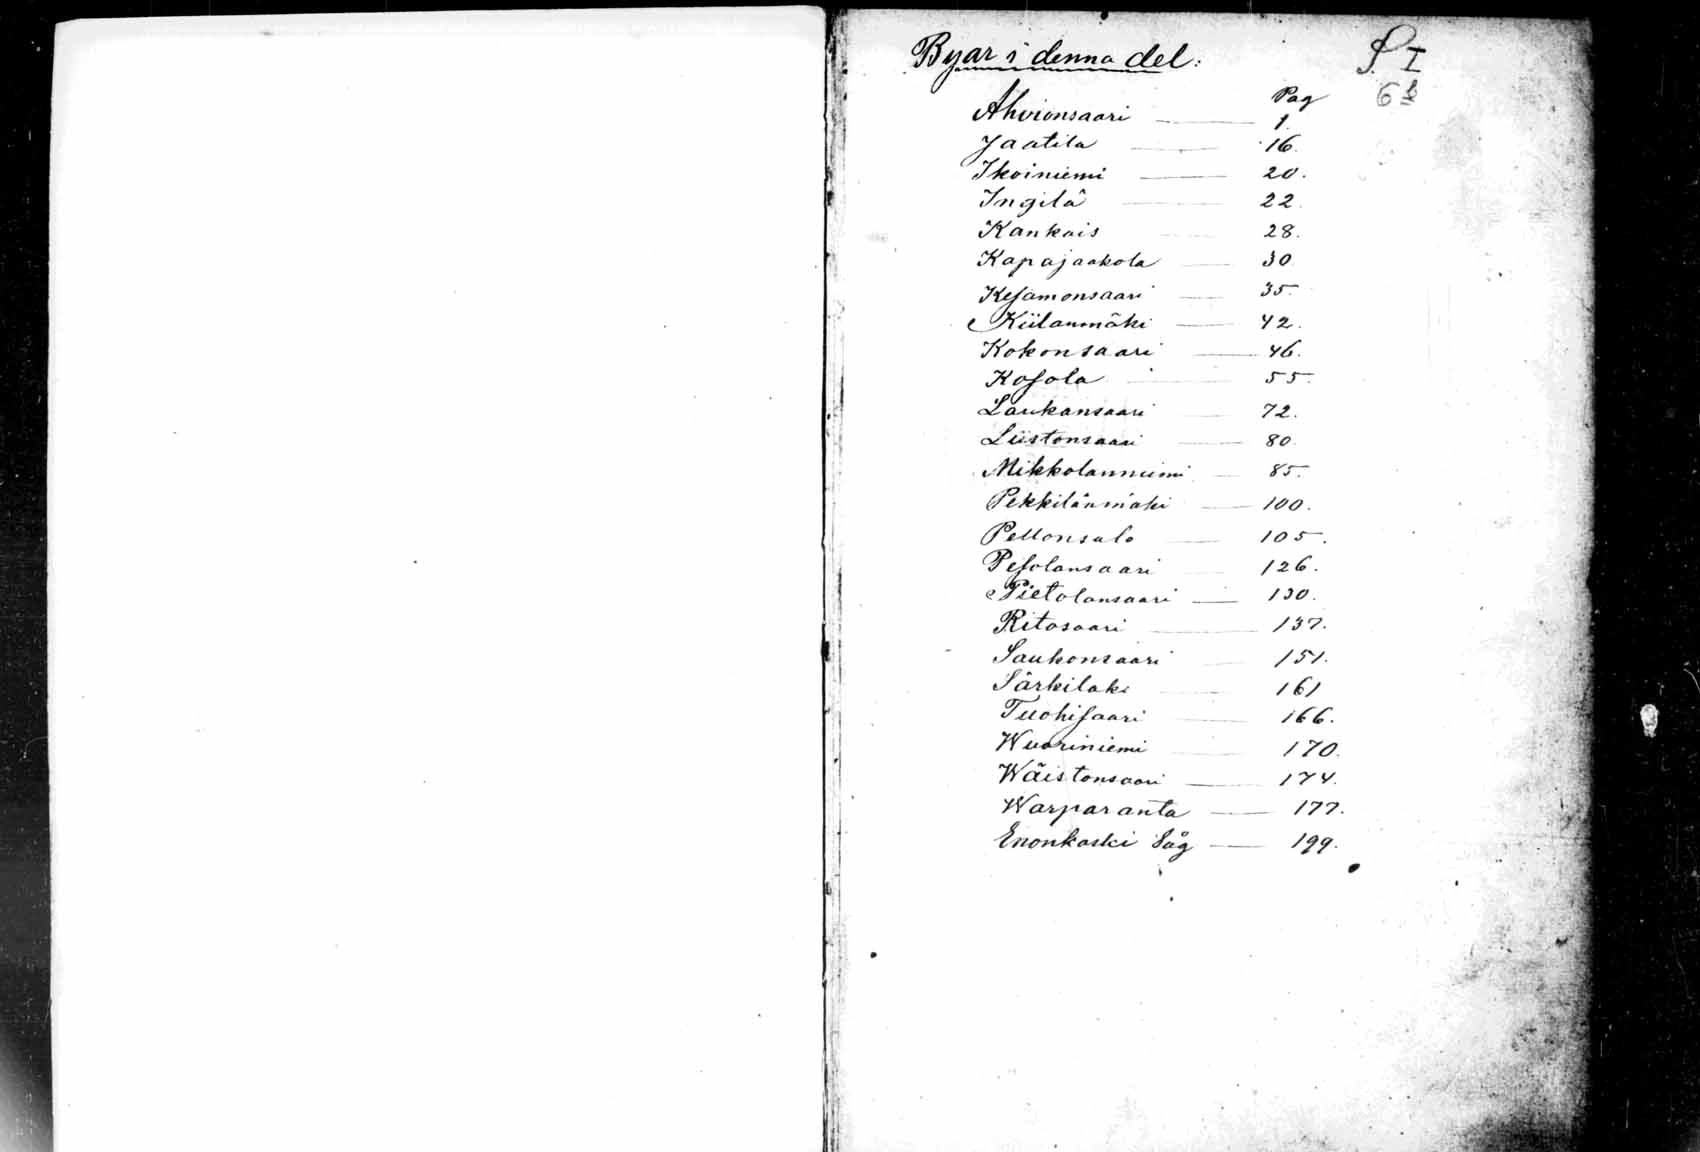 Byar i denna del:
Pag
Ahvionsaari 1.
Jaatila 16.
Ikoiniemi 20.
Ingilä 22.
Kankais 28.
Kapajaakola 30
Kesamonsaari 35.
Kiilanmäki 42.
Kokonsaari 46.
Kosola 55.
Laukansaari 72.
Liistonsaari 80.
Mikkolanniemi 85.
Pekkilänmäki 100.
Pellonsalo 105.
Pesolansaari 126.
Pietolansaari 130.
Ritosaari 137.
Saukonsaari 151.
Särkilaks 161
Tuohisaari 166.
Wuoriniemi 170.
Wäistonsaari 174.
Warparanta 177.
Enonkoski Såg 199.